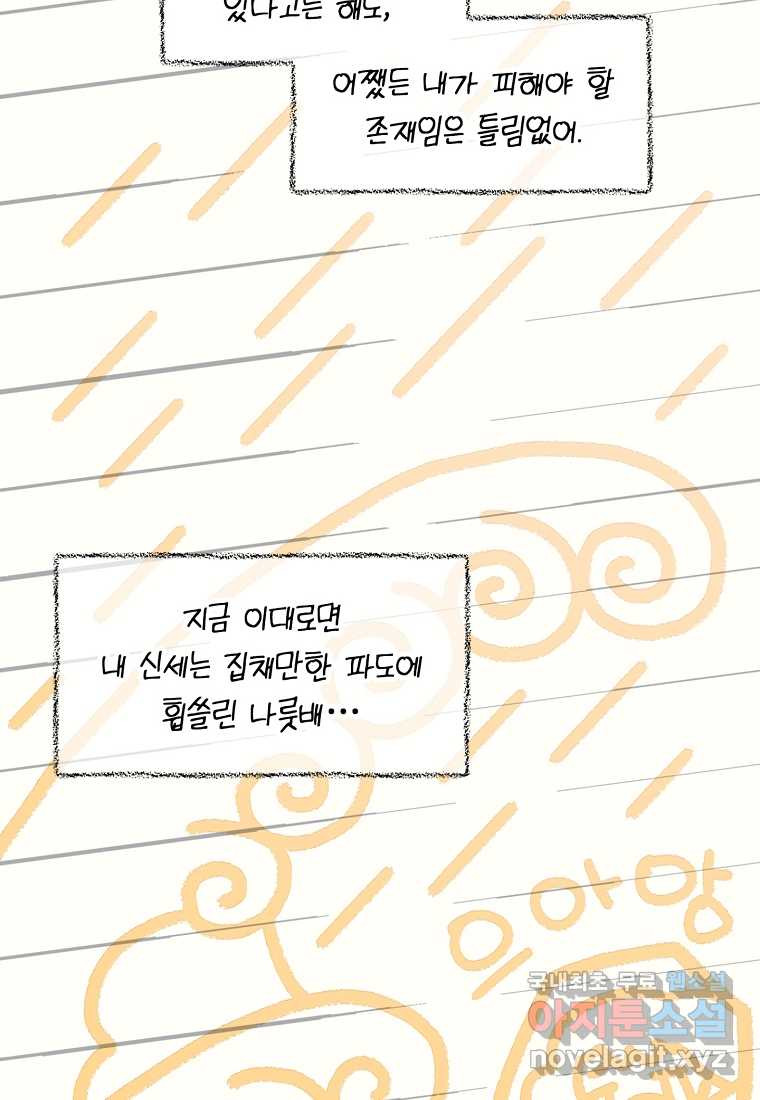 있다고는 해도,
어쨌든 내가 피해야 할
존재임은 틀림없어.
지금 이대로면
내 신세는 집채만한 파도에
휩쓸린 나룻배…
으아앙
국내최초 무료 웹소설
아지툰소설
novelagit.xyz